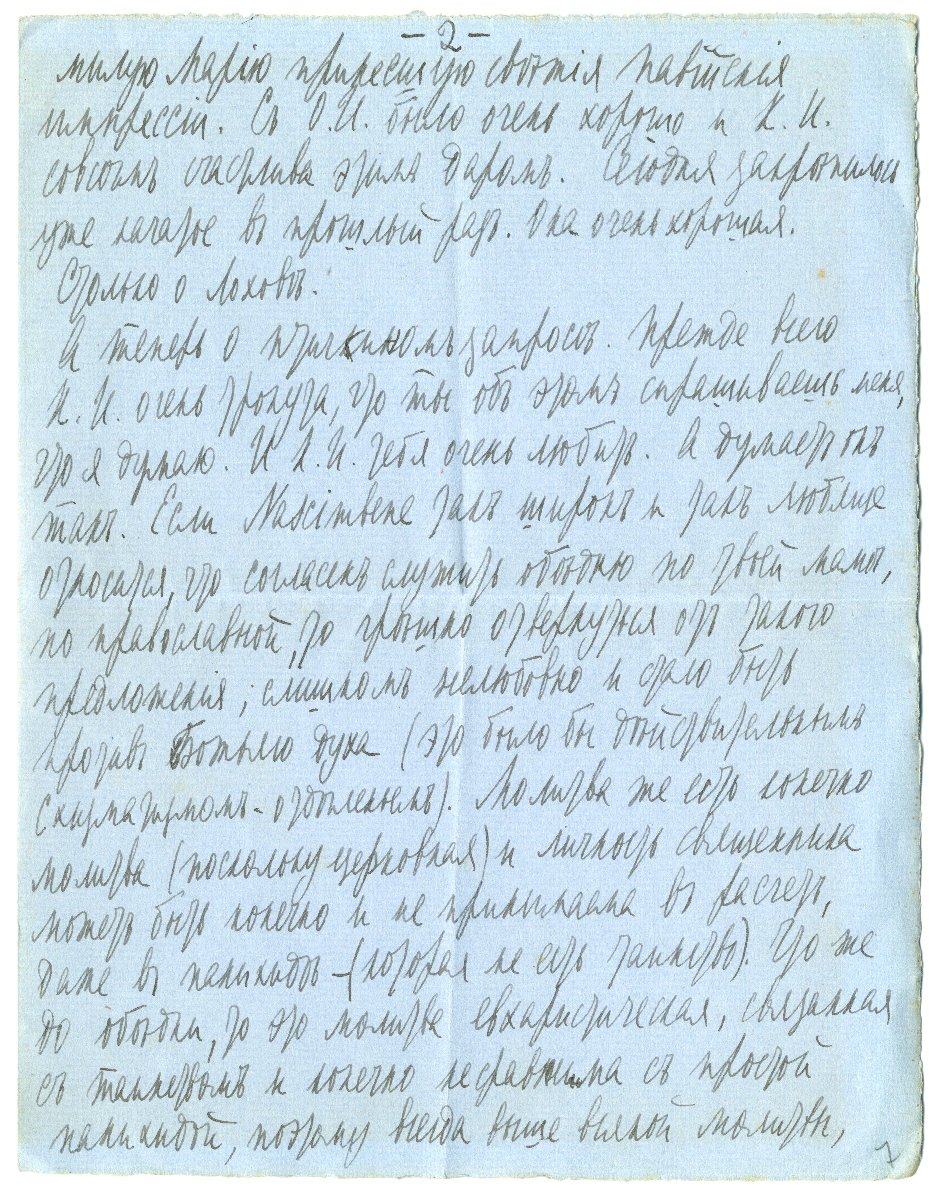 - 2 -
милую Марію принесшую свѣтія
импрессіи. Съ О.И. было очень хорошо и К. И.
совсѣмъ счастлива этимъ даромъ. Сегодня закрѣпилось
уже начатое въ прошлый разъ. Она очень хорошая.
Столько о Лоховѣ.
А теперь о запросѣ. Прежде всего
К. И. очень тронута, что ты объ этомъ спрашиваешь меня,
что я думаю. И Л.И. тебя очень любитъ. А думаетъ онъ
такъ. Если такъ широкъ и такъ любяще
относится, что согласенъ служить обѣдню по твоей мамѣ,
по православной, то грѣшно отвернуться отъ такого
предложенія; слишкомъ нелюбовно и стало быть
противъ Божьяго духа (это было бы дѣйствительнымъ
схизматизмомъ - отдѣленьемъ). Молитва же есть конечно
молитва (поскольку церковная) и личность священника
можетъ быть конечно и не принимаема въ расчетъ,
даже въ панихидѣ - (которая не есть таинство). Что же
до обѣдни, то это молитва евхаристическая, связанная
съ таинствомъ и конечно несравнима съ простой
панихидой, поэтому всегда выше всякой молитвы,